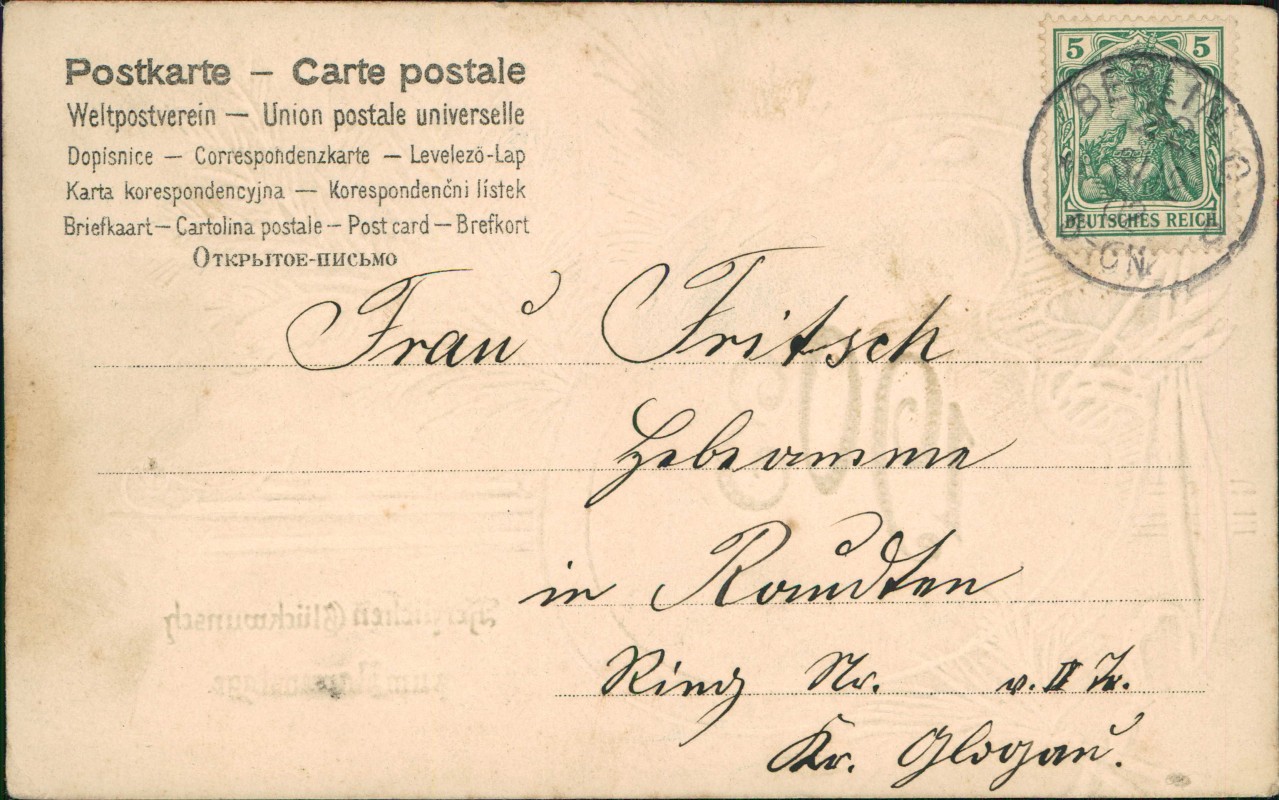 Postkarte – Carte postale
Weltpostverein — Union postale universelle
Dopisnice — Correspondenzkarte — Levelező-Lap
Karta korespondencyjna — Korespondenčni lístek
Briefkaart — Cartolina postale – Post card — Brefkort
Открытое-письмо
5 5
DEUTSCHES REICH
BERLIN
Frau Fritsch
Hebeamme
in Raudten
Ring Nr. v. II Tr.
Kr. Glogau.
Herzlichen Glückwunsch
zum